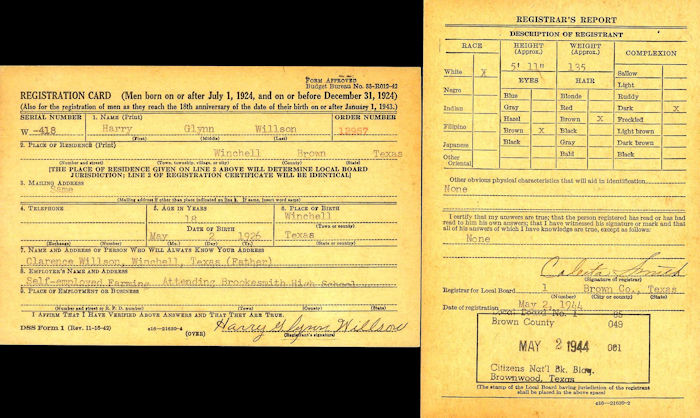 FORM APPROVED
Budget Bureau No. 33-R012-43
REGISTRATION CARD (Men born on or after July 1, 1924, and on or before December 31, 1924)
(Also for the registration of men as they reach the 18th anniversary of the date of their birth on or after January 1, 1943.)
SERIAL NUMBER 1. NAME (Print) ORDER NUMBER
W -418 Harry Glynn Willson
(First) (Middle) (Last)
2. PLACE OF RESIDENCE (Print)
Winchell Brown Texas
(Number and street) (Town, township, village, or city) (County) (State)
[THE PLACE OF RESIDENCE GIVEN ON LINE 2 ABOVE WILL DETERMINE LOCAL BOARD
JURISDICTION; LINE 2 OF REGISTRATION CERTIFICATE WILL BE IDENTICAL]
3. MAILING ADDRESS
Same
(Mailing address if other than place indicated on line 2. If same, insert word same)
4. TELEPHONE 5. AGE IN YEARS 6. PLACE OF BIRTH
18 Winchell
DATE OF BIRTH (Town or county)
May 2 1926 Texas
(Exchange) (Number) (Mo.) (Day) (Yr.) (State or country)
7. NAME AND ADDRESS OF PERSON WHO WILL ALWAYS KNOW YOUR ADDRESS
Clarence Willson, Winchell, Texas (Father)
8. EMPLOYER'S NAME AND ADDRESS
Self-employed Farming Attending Brookesmith High School
9. PLACE OF EMPLOYMENT OR BUSINESS
(Number and street or R. F. D. number) (Town) (County) (State)
I AFFIRM THAT I HAVE VERIFIED ABOVE ANSWERS AND THAT THEY ARE TRUE.
DSS Form 1 (Rev. 11-16-42) (OVER) Harry Glynn Willson
(Registrant's signature)
REGISTRAR'S REPORT
DESCRIPTION OF REGISTRANT
RACE HEIGHT (Approx.) WEIGHT (Approx.) COMPLEXION
5' 11" 135
White X Sallow
EYES HAIR Light
Negro Blue Blonde Ruddy
Indian Gray Red Dark X
Hazel Brown X Freckled
Filipino Brown X Black Light brown
Japanese Black Gray Dark brown
Other Oriental Bald Black
Other obvious physical characteristics that will aid in identification
None
I certify that my answers are true; that the person registered has read or has had
read to him his own answers; that I have witnessed his signature or mark and that
all of his answers of which I have knowledge are true, except as follows:
None
Smith
(Signature of registrar)
Registrar for Local Board 1 Brown Co., Texas
(Number) (City or county) (State)
Date of registration May 2, 1944
Local Board No. 1 85
Brown County 049
MAY 2 1944 001
Citizens Nat'l Bk. Bldg.
Brownwood, Texas
(The stamp of the Local Board having jurisdiction of the registrant
shall be placed in the above space)